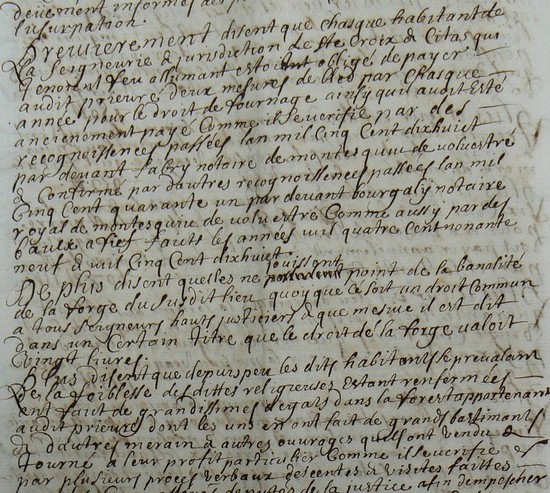 deuement informés des
l'usurpation.
Premierement disent que chasque habitant de
La Seigneurie & jurisdiction de Ste Croix & Citas qui
tenoint feu allumant estoint obligé de payer
audit prieuré deux mesures de bled par chasque
année pour le droit de fournage ainsy quil audit Esté
anciennoment payé Comme il se verifie par des
recognoissences passées lan mil Cinq Cent dixhuict
par devant notaire de montesquiu de voluestré
& Confirmé par dautres recognoissences passées lan mil
Cinq Cent quarante un par devant bourgaly notaire
royal de montesquiu de voluestré Comme aussy par des
baux a fief faits les années mil quatre Cent nonante
neuf & mil Cinq Cent dixhuict
De plus disent quelles ne jouissent point de la banalité
de la forge du susdit lieu quoy que Ce soit un droit Commun
a tous seigneurs hauts justiciers & que mesme il est dit
dans un Certain titre que le droit de la forge valoit
vingt livres.
Plus disent que depuis peu les dits habitants se prevalant
de la foiblesse des dittes religieuses Estant renfermées
ont fait de grandissimes degats dans la forest appartenant
audit prieuré dont les uns en ont fait de grands bastimants
& dautres merain & autres ouvrages quils ont vendu &
tourné a leur profit particulier Comme il se verifie
par plusieurs proces verbaux descentes & visites faittes
de la justice afin dempescher